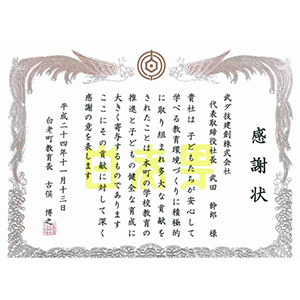 感謝状
武ダ技建創株式会社
代表取締役社長 武田 幹郎 様
貴社は 子どもたちが安心して
学べる教育環境づくりに積極的
に取り組まれ多大な貢献を
されたことは本町の学校教育の
推進と子どもの健全な育成に
大きく寄与するものであります
ここにその貢献に対して深く
感謝の意を表します
平成二十四年十一月十三日
白老町教育長 古俣 博之